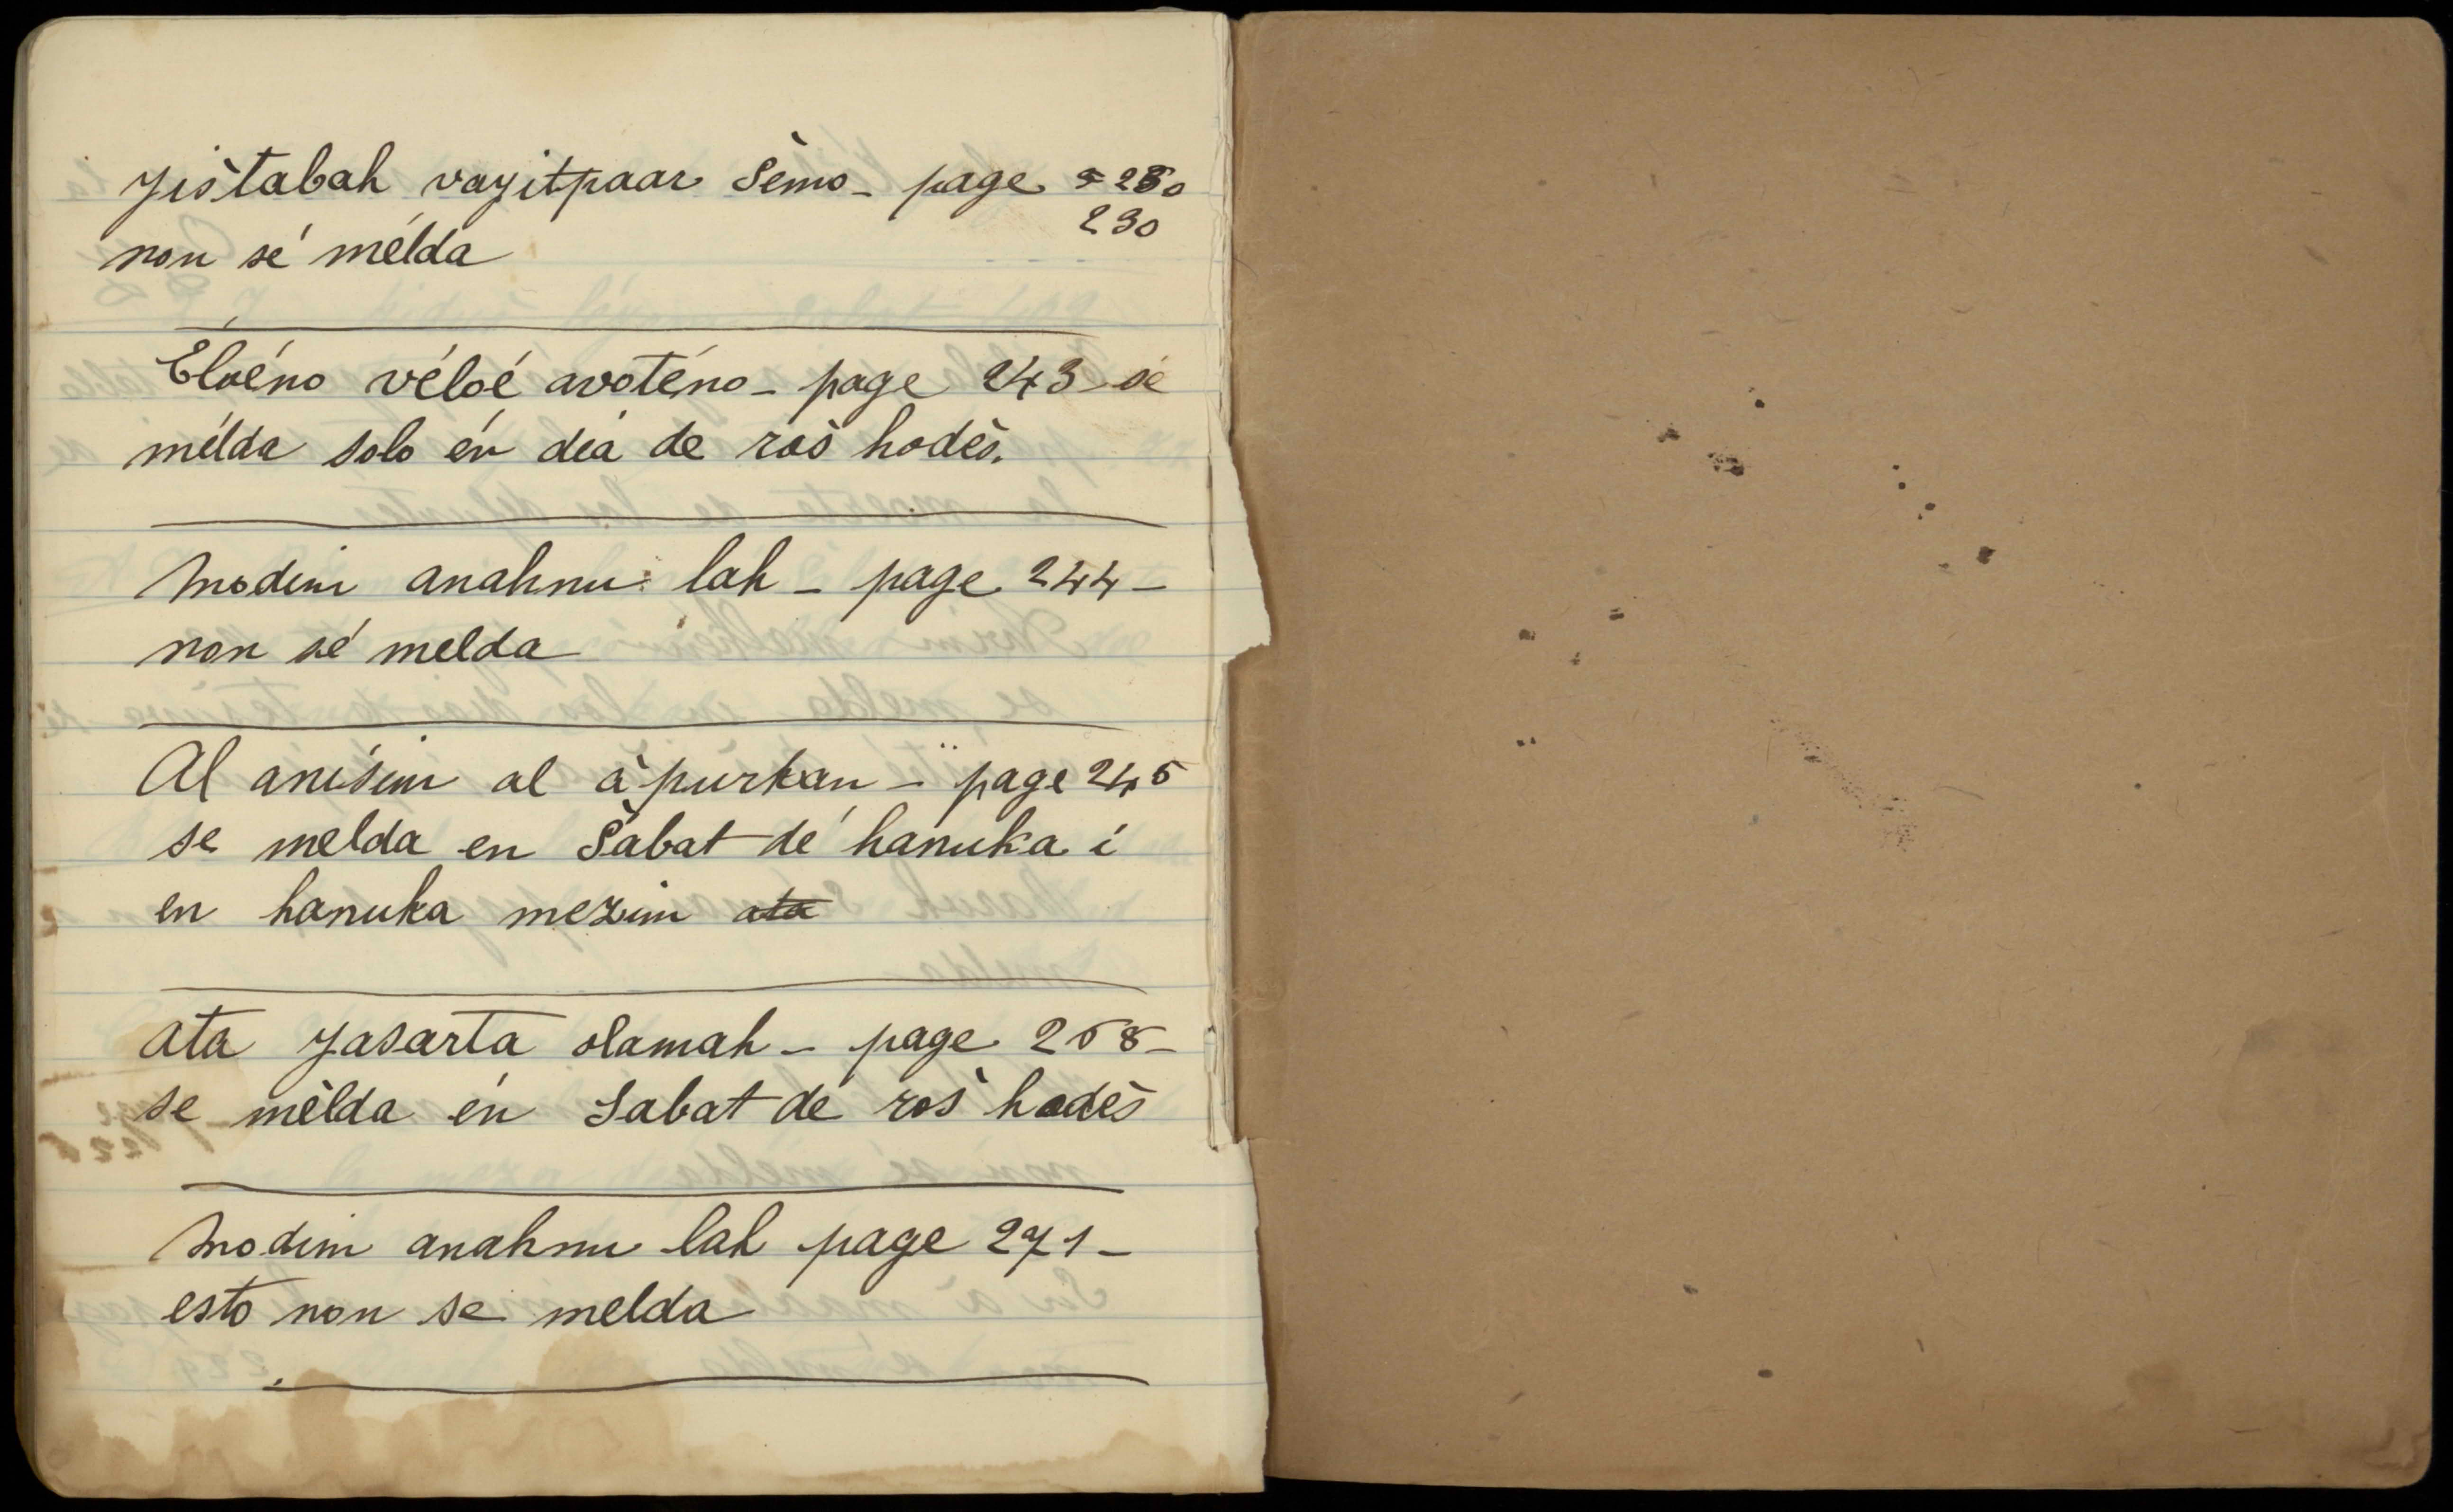 yištabah vayitpaar šèmo - page 280
230
non sé mélda
Eloéno véloé avoténo - page 243 sé
mélda solo én dea de roš hodèš.
Modim anahnu lah - page 244 -
non sé melda
Al anisim al à purkan - page 245
se melda en Šabat dé hanuka i
en hanuka mezim ata
ata yasarta olamah - page 258 -
se mèlda én Sabat dé roš hodèš
Modim anahnu lah page 271 -
esto non se melda